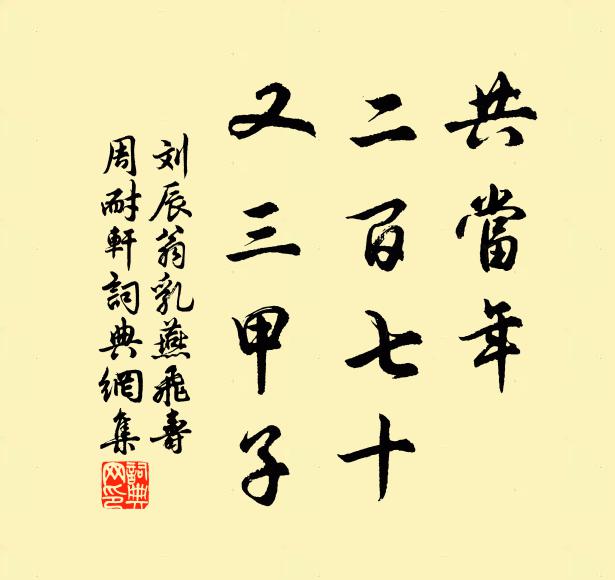 共當年
二百七十
又三甲子
刘辰翁乳燕飛壽
周耐軒詞典網集
詞典
网印